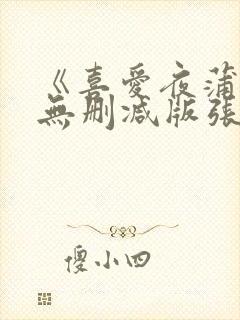 《喜愛夜蒲
無刪减版張
傻小四